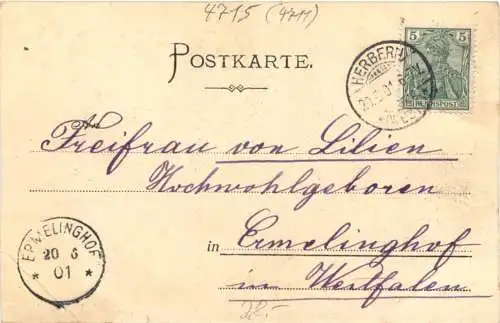 4715 (4711)
POSTKARTE.
HERBERN
20.6.01
5
5
REICHSPOST
An
Freifrau von Lilien
Hochwohlgeboren
in Ermelinghof
in Westfalen
ERMELINGHOF
20 6
* 01 *